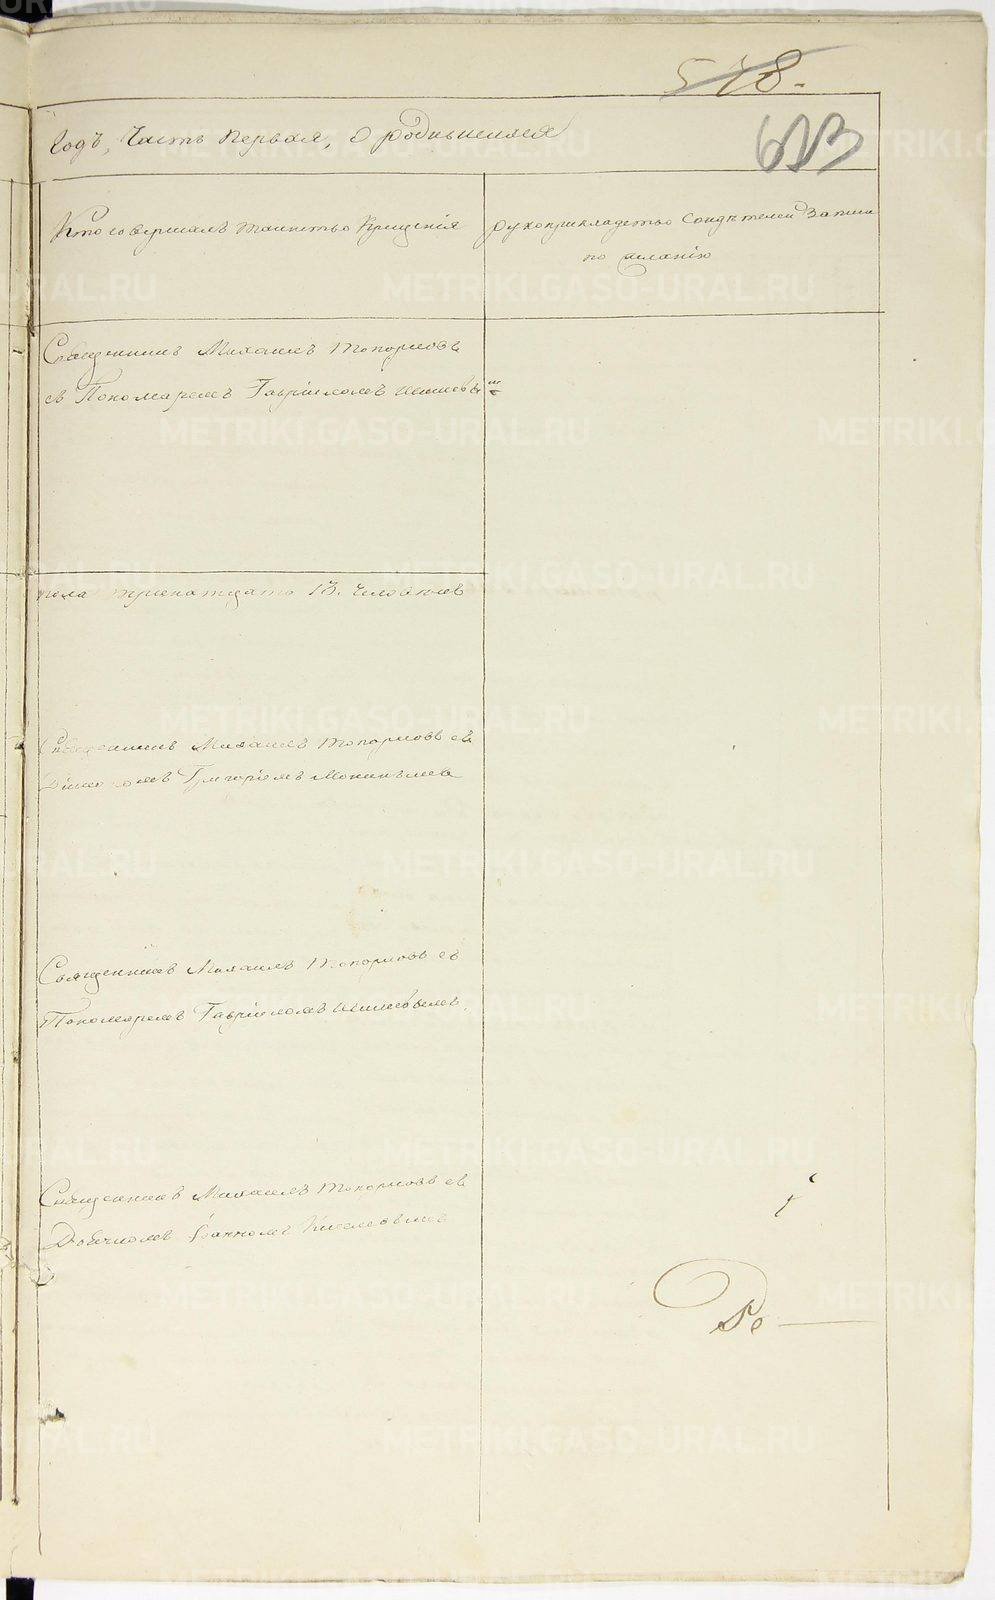 578.
603
Годъ, Часть Первая, О родившихся
Кто совершалъ таинство Крещенія
Рукоприкладство Свидѣтелей Записи
по желанію
Священникъ Михаилъ Топорковъ
съ Пономаремъ Гавріиломъ
пола тринатцать 13. человѣкъ
Священникъ Михаилъ Топорковъ съ
Григоріемъ
Священникъ Михаилъ Топорковъ съ
Пономаремъ Гавріиломъ
Священникъ Михаилъ Топорковъ съ
Іоанномъ Киселевымъ
METRIKI.GASO-URAL.RU